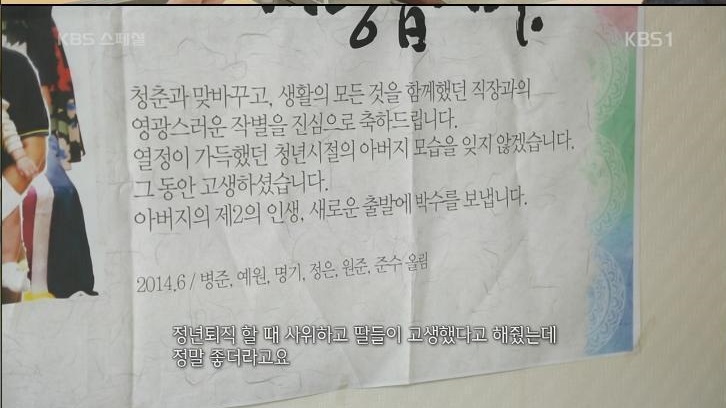 KBS 스페셜
KBS1
청춘과 맞바꾸고, 생활의 모든 것을 함께했던 직장과의
영광스러운 작별을 진심으로 축하드립니다.
열정이 가득했던 청년시절의 아버지 모습을 잊지 않겠습니다.
그 동안 고생하셨습니다.
아버지의 제2의 인생, 새로운 출발에 박수를 보냅니다.
2014.6 / 병준, 예원, 명기, 정은, 원준, 준수 올림
정년퇴직 할 때 사위하고 딸들이 고생했다고 해줬는데
정말 좋더라고요